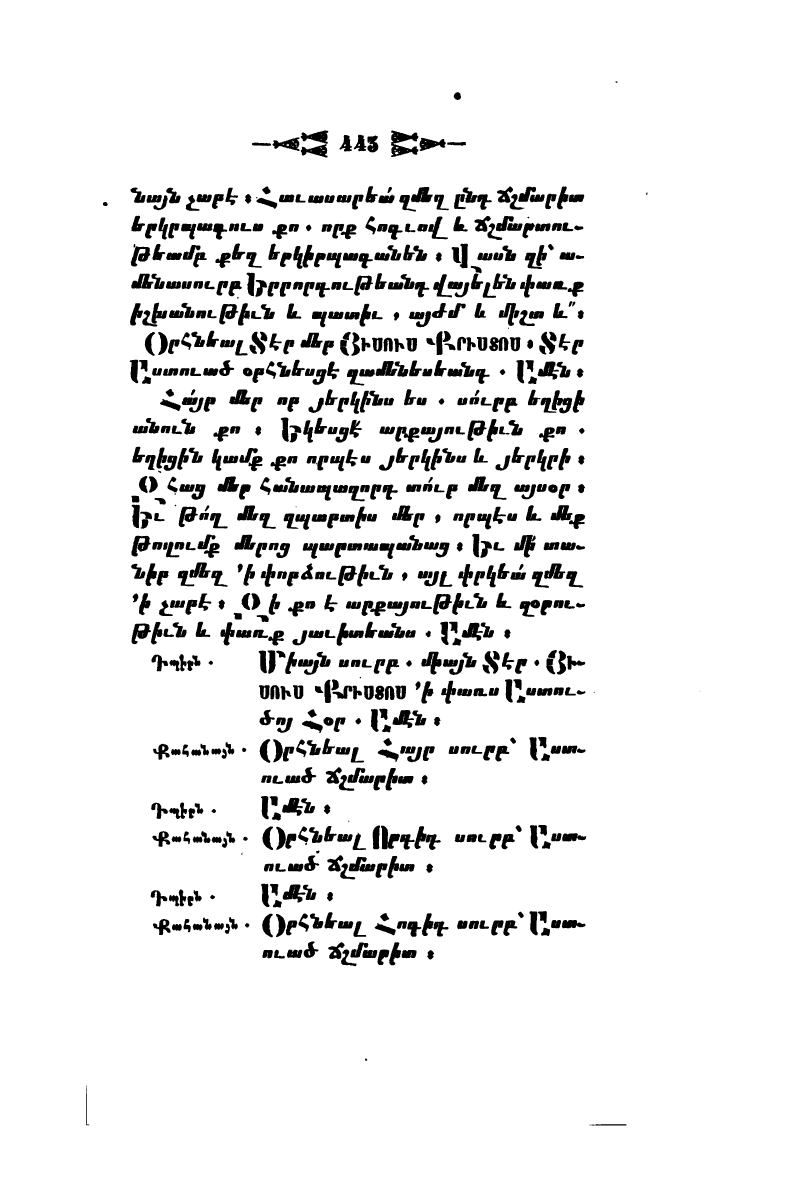 443
նայն չարէ ։ Հաւասարեա՛ զմեզ ընդ ճշմարիտ
երկրպագուս քո . որք հոգւով և ճշմարտու-
թեամբ քեզ երկիրպագանեն ։ Վասն զի՝ ա-
մենասուրբ Երրորդութեանդ վայելեն փառք
իշխանութիւն և պատիւ , այժմ և միշտ և՞ ։
Օրհնեալ Տէր մեր ՅԻՍՈՒՍ ՔՐԻՍՏՈՍ ։ Տէր
Աստուած օրհնեսցէ զամենեսեանդ . Ամէն ։
Հա՛յր մեր որ յերկինս ես . սո՛ւրբ եղիցի
անուն քո ։ Եկեսցէ արքայութիւն քո .
եղիցին կամք քո որպէս յերկինս և յերկրի ։
Զհաց մեր հանապազորդ տո՛ւր մեզ այսօր ։
Եւ թո՛ղ մեզ զպարտիս մեր , որպէս և մեք
թողումք մերոց պարտապանաց ։ Եւ մի՛ տա-
նիր զմեզ ՚ի փորձութիւն , այլ փրկեա՛ զմեզ
՚ի չարէ ։ Զի քո է արքայութիւն և զօրու-
թիւն և փառք յաւիտեանս . Ամէն ։
Դպիրն . Միայն սուրբ . միայն Տէր . ՅԻ-
ՍՈՒՍ ՔՐԻՍՏՈՍ ՚ի փառս Աստու-
ծոյ Հօր . Ամէն ։
Քահանայն . Օրհնեալ Հայր սուրբ՝ Աստ-
ուած ճշմարիտ ։
Դպիրն . Ամէն ։
Քահանայն . Օրհնեալ Որդիդ սուրբ՝ Աստ-
ուած ճշմարիտ ։
Դպիրն . Ամէն ։
Քահանայն . Օրհնեալ Հոգիդ սուրբ՝ Աստ-
ուած ճշմարիտ ։